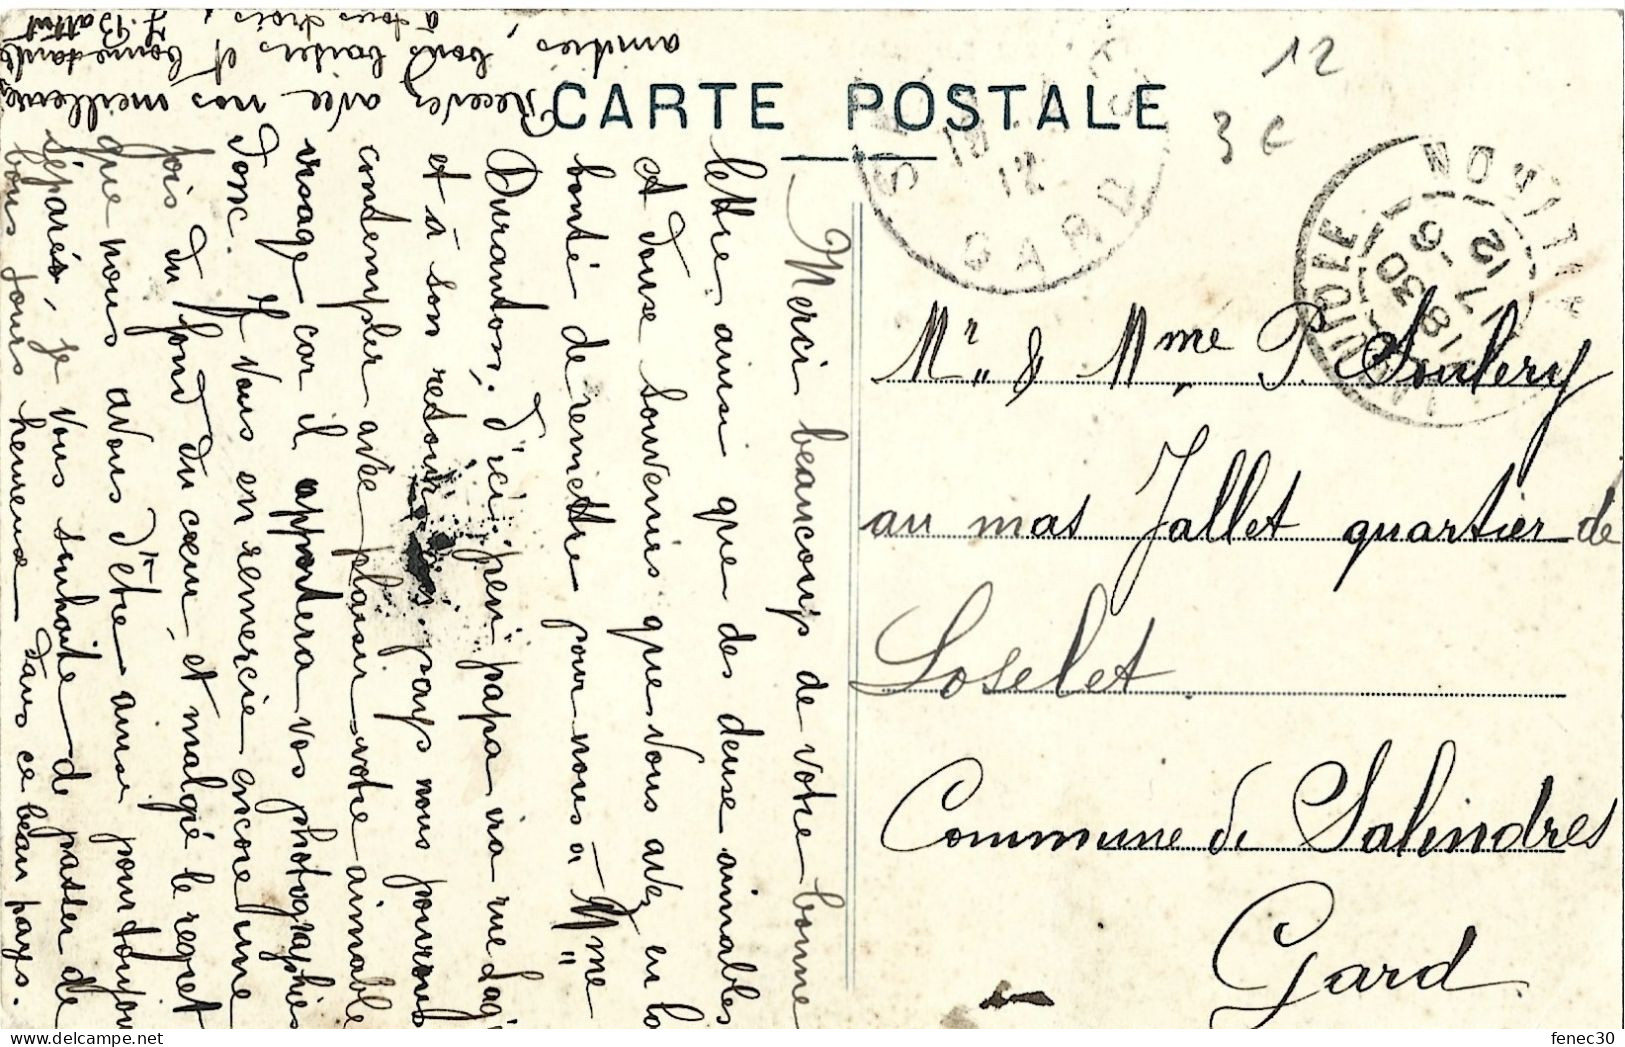 CARTE POSTALE
12
3 €
Merci beaucoup de votre bonne
lettre, ainsi que des deux aimables
et doux souvenirs que vous avez eu la
bonté de remettre pour nous à Mme
Durantos, d'ici peu papa ira rue
et à son retour pays nous pourrons
contempler avec plaisir votre aimable
visage car il apportera vos photographies
donc. Je vous en remercie encore une
fois du fond du cœur, et malgré le regret
que nous avons d'être ainsi pour toujours
séparés, je vous souhaite de passer de
bons jours heureux dans ce beau pays.
Recevez avec nos meilleures
amitiés, bons baisers et bonne santé
à tous trois,
Mr. & Mme P. Soulery
au mas Jallet quartier de
Loselet.
Commune de Salindres
Gard
GARD
12
fenec30